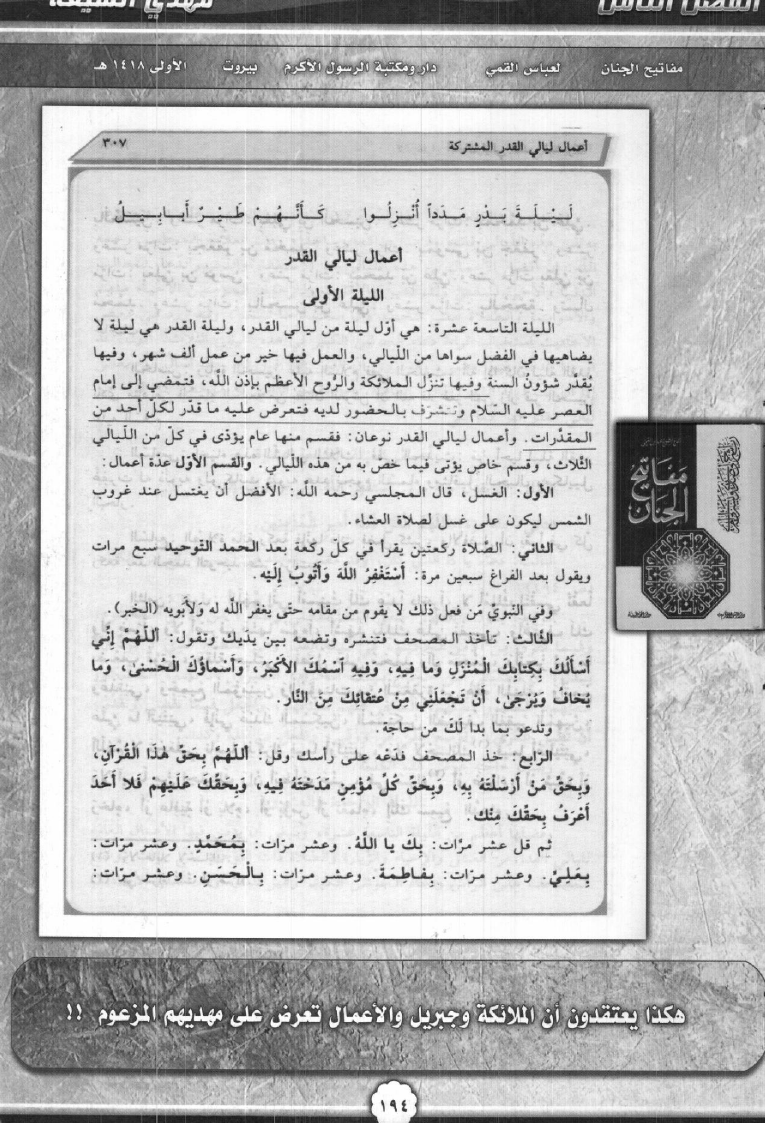 الفصل الثامن
مهدي الشيعة
مفاتيح الجنان لعباس القمي دار ومكتبة الرسول الأكرم بيروت الأولى ١٤١٨ هـ
أعمال ليالي القدر المشتركة ٣٠٧
لَيْلَةَ بَدْرٍ مَدَداً أُنْزِلُوا كَأَنَّهُمْ طَيْرٌ أَبابِيلُ
أعمال ليالي القدر
الليلة الأولى
الليلة التاسعة عشرة: هي أوّل ليلة من ليالي القدر، وليلة القدر هي ليلة لا
يضاهيها في الفضل سواها من اللّيالي، والعمل فيها خير من عمل ألف شهر، وفيها
يُقدَّر شؤونُ السنة وفيها تنزَّل الملائكة والرُّوح الأعظم بإذن اللَّه، فتمضي إلى إمام
العصر عليه السّلام وتتشرّف بالحضور لديه فتعرض عليه ما قدّر لكلّ أحد من
المقدَّرات. وأعمال ليالي القدر نوعان: فقسم منها عام يؤدّى في كلّ من اللّيالي
الثّلاث، وقسم خاص يؤتى فيما خصّ به من هذه اللّيالي. والقسم الأوّل عدّة أعمال:
الأول: الغسل، قال المجلسي رحمه اللَّه: الأفضل أن يغتسل عند غروب
الشمس ليكون على غسل لصلاة العشاء.
الثاني: الصَّلاة ركعتين يقرأ في كلّ ركعة بعد الحمد التّوحيد سبع مرات
ويقول بعد الفراغ سبعين مرة: أَسْتَغْفِرُ اللَّهَ وَأَتُوبُ إِلَيْهِ.
وفي النّبويّ مَن فعل ذلك لا يقوم من مقامه حتّى يغفر اللَّه له وَلأبويه (الخبر).
الثَّالث: تأخذ المصحف فتنشره وتضعه بين يدَيك وتقول: اَللّهُمَّ إِنِّي
أَسْأَلُكَ بِكِتابِكَ الْمُنْزَلِ وَما فِيهِ، وَفِيهِ اَسْمُكَ الأَكْبَرُ، وَأَسْماؤُكَ الْحُسْنىٰ، وَما
يُخافُ وَيُرْجىٰ، أَنْ تَجْعَلَنِي مِنْ عُتَقائِكَ مِنَ النَّارِ.
وتدعو بما بدا لَكَ من حاجة.
الرّابع: خذ المصحف فدَعْه على رأسك وقل: اَللّهُمَّ بِحَقِّ هٰذَا الْقُرْآنِ،
وَبِحَقِّ مَنْ أَرْسَلْتَهُ بِهِ، وَبِحَقِّ كُلِّ مُؤْمِنٍ مَدَحْتَهُ فِيهِ، وَبِحَقِّكَ عَلَيْهِمْ فَلا أَحَدَ
أَعْرَفُ بِحَقِّكَ مِنْك.
ثم قل عشر مرَّات: بِكَ يا اللَّهُ. وعشر مرّات: بِمُحَمَّدٍ. وعشر مرّات:
بِعَليٍّ. وعشر مرّات: بِفاطِمَةَ. وعشر مرّات: بِالْحَسَنِ. وعشر مرّات:
مفاتيح
الجنان
هكذا يعتقدون أن الملائكة وجبريل والأعمال تعرض على مهديهم المزعوم !!
١٩٤